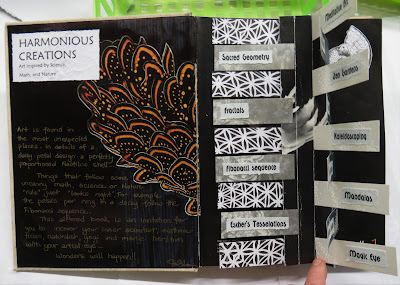 HARMONIOUS
CREATIONS
Art Inspired by Science,
Math, and Nature
Art is found in
the most unexpected
places. in details of a
daisy petal design a perfectly
proportioned Nautilus shell.
Things that follow some
uncanny math, science or Nature
"rule" just "looks right" for example
the petals per ring in a daisy follow the
Fibonacci sequence.
This altered book is an invitation for
you to incover your inner scientist, mathema-
tician, naturalist, guru and mystic her/him
with your artist eye...
Wonders will happen!
Sacred Geometry
fractals
Fibonacci Sequence
Escher's Tesselations
Meditation Art
Zen Gardens
Kaleidoscoping
Mandalas
Magic Eye